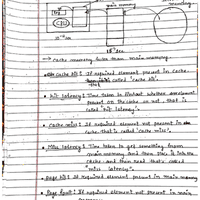 main memory
memory
CPU
→ cache memory faster than main memory
cache hit : If required element present in cache
called "cache hit".
Hit latency : Time taken to
present on the cache or not, that is
called "Hit latency".
cache miss : If required element not present in
cache. that is called "cache miss".
Miss latency : Time taken to get something from
main memory and then store it into the
cache and then read that's called
miss latency.
Page hit : If required element present in main memory
Page fault : If required element not present in main
memory